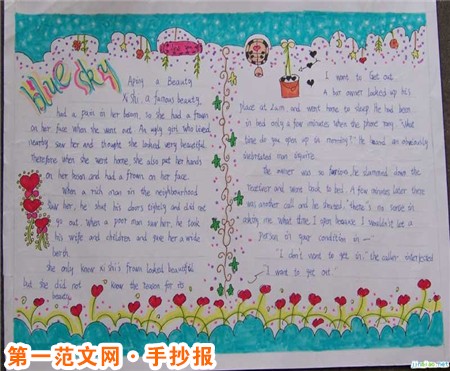 blue sky
Aping a Beauty
Xi shi, a famous beauty,
had a pain in her bosom, so she had a frown
on her face when she went out. An ugly girl who lived
nearby saw her and thought she looked very beautiful.
Therefore when she went home, she also put her hands
on her bosom and had a frown on her face.
When a rich man in the neighbourhood
saw her, he shut his doors tightly and did not
go out. When a poor man saw her, he took
his wife and children and gave her a wide
berth.
She only knew Xi shi's frown looked beautiful
but she did not know the reason for its
beauty.
I want to get out
A bar owner locked up his
place at 2 a.m. and went home to sleep. He had been
in bed only a few minutes when the phone rang. "What
time do you open up in morning?" He heard an obviously
inebriated man inquire.
The owner was so furious, he slammed down the
receiver and went back to bed. A few minutes later there
was another call and he
asking me what time I open because I wouldn't let a
person in your condition in —"
"I don't want to get in," the caller interjected
"I want to get out."
第一范文网·手抄报